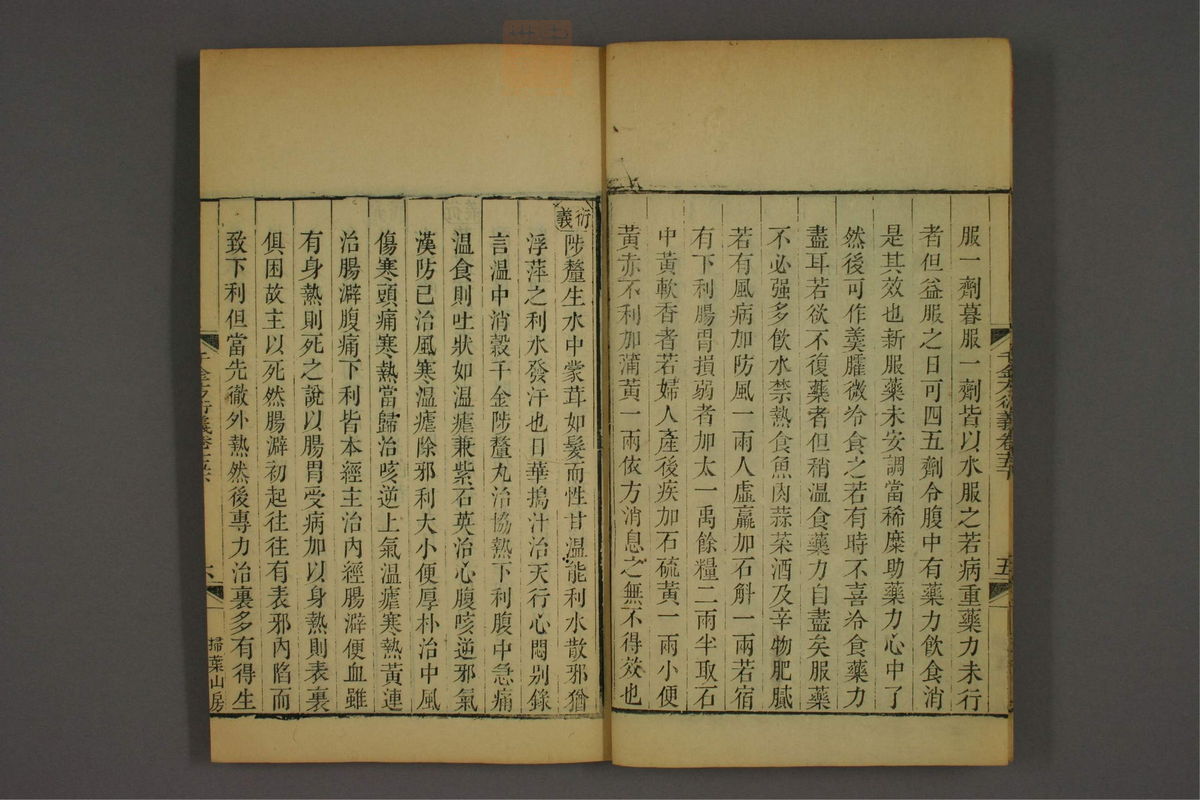 服一劑暮服一劑皆以水服之若病重藥力未行
者但益服之日可四五劑令腹中有藥力飲食消
是其效也新服藥未安調當稀糜助藥力心中了
然後可作羹臛微冷食之若有時不喜冷食藥力
盡耳若欲不復藥者但稍溫食藥力自盡矣服藥
不必强多飲水禁熱食魚肉蒜菜酒及辛物肥膩
若有風病加防風一兩人虛羸加石斛一兩若宿
有下利腸胃損弱者加太一禹餘糧二兩半取石
中黃軟香者若婦人產後疾加石硫黃一兩小便
黃赤不利加蒲黃一兩依方消息之無不得效也
衍義陟釐生水中蒙茸如髮而性甘溫能利水散邪猶
浮萍之利水發汗也日華搗汁治天行心悶别錄
言溫中消穀千金陟釐丸治協熱下利腹中急痛
溫食則吐狀如溫瘧兼紫石英治心腹咳逆邪氣
漢防已治風寒溫瘧除邪利大小便厚朴治中風
傷寒頭痛寒熱當歸治咳逆上氣溫瘧寒熱黃連
治腸澼腹痛下利皆本經主治內經腸澼便血雖
有身熱則死之說以腸胃受病加以身熱則表裏
俱困故主以死然腸澼初起往往有表邪內陷而
致下利但當先徹外熱然後專力治裏多有得生
掃葉山房